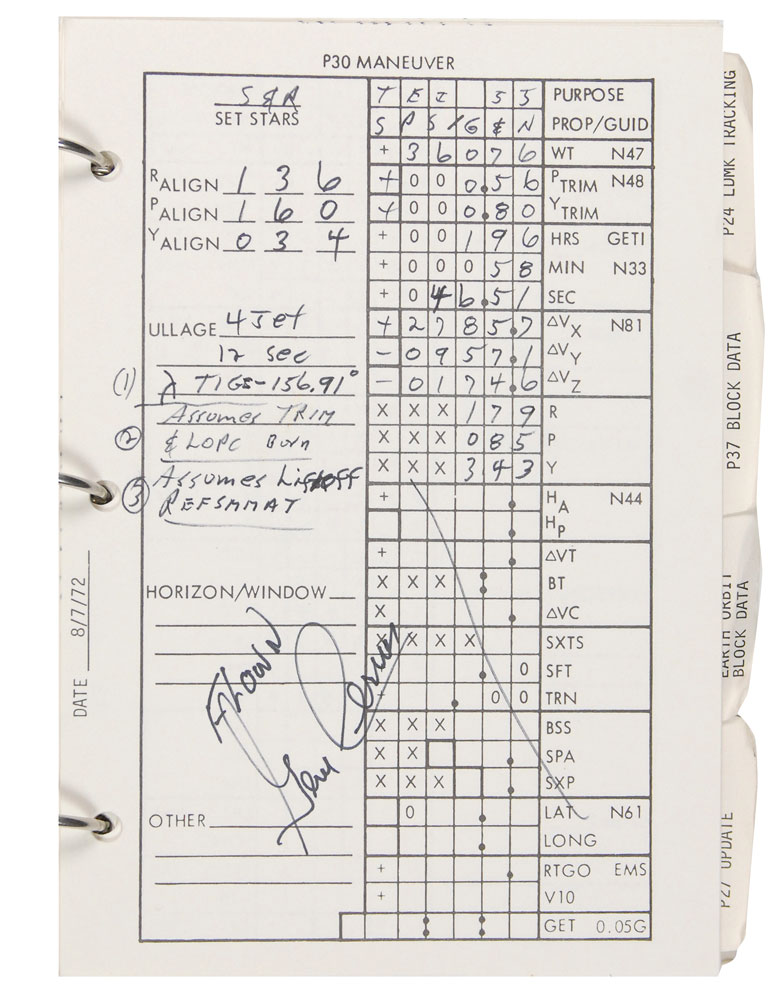 P30 MANEUVER
S & A
SET STARS
R ALIGN 1 3 6
P ALIGN 1 6 0
Y ALIGN 0 3 4
ULLAGE 4 Jet
12 sec
(1) λ TIG = -156.91°
(2) Assumes TRIM
& LOPC Burn
(3) Assumes Liftoff
REFSMMAT
HORIZON/WINDOW
FLOWN
Gene Cernan
OTHER
T E I 5 3 PURPOSE
S P S / G & N PROP/GUID
+ 3 6 0 7 6 WT N47
+ 0 0 0.5 6 P TRIM N48
+ 0 0 0.8 0 Y TRIM
+ 0 0 1 9 6 HRS GETI
+ 0 0 0 5 8 MIN N33
+ 0 4 6.5 1 SEC
+ 2 7 8 5.7 ΔVX N81
- 0 9 5 7.1 ΔVY
- 0 1 7 4.6 ΔVZ
X X X 1 7 9 R
X X X 0 8 5 P
X X X 3 4 3 Y
+ . HA N44
. HP
+ . ΔVT
X X X : BT
X . ΔVC
X X X X SXTS
. 0 SFT
+ . 0 0 TRN
X X X BSS
X X . SPA
X X X . SXP
0 . LAT N61
. LONG
+ . RTGO EMS
+ V10
: : GET 0.05G
DATE 8/7/72
P24 LDMK TRACKING
P37 BLOCK DATA
EARTH ORBIT
BLOCK DATA
P27 UPDATE